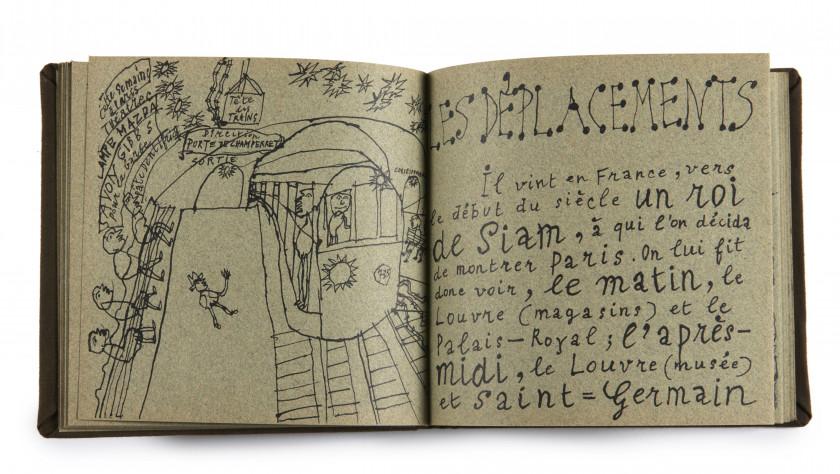 cette semaine
Tête
des
TRAINS
Direction
PORTE DE CHAMPERRET
SORTIE
LES DÉPLACEMENTS
Il vint en France, vers
le début du siècle un roi
de Siam, à qui l'on décida
de montrer Paris. On lui fit
donc voir, le matin, le
Louvre (magasins) et le
Palais-Royal ; l'après-
midi, le Louvre (musée)
et Saint=Germain